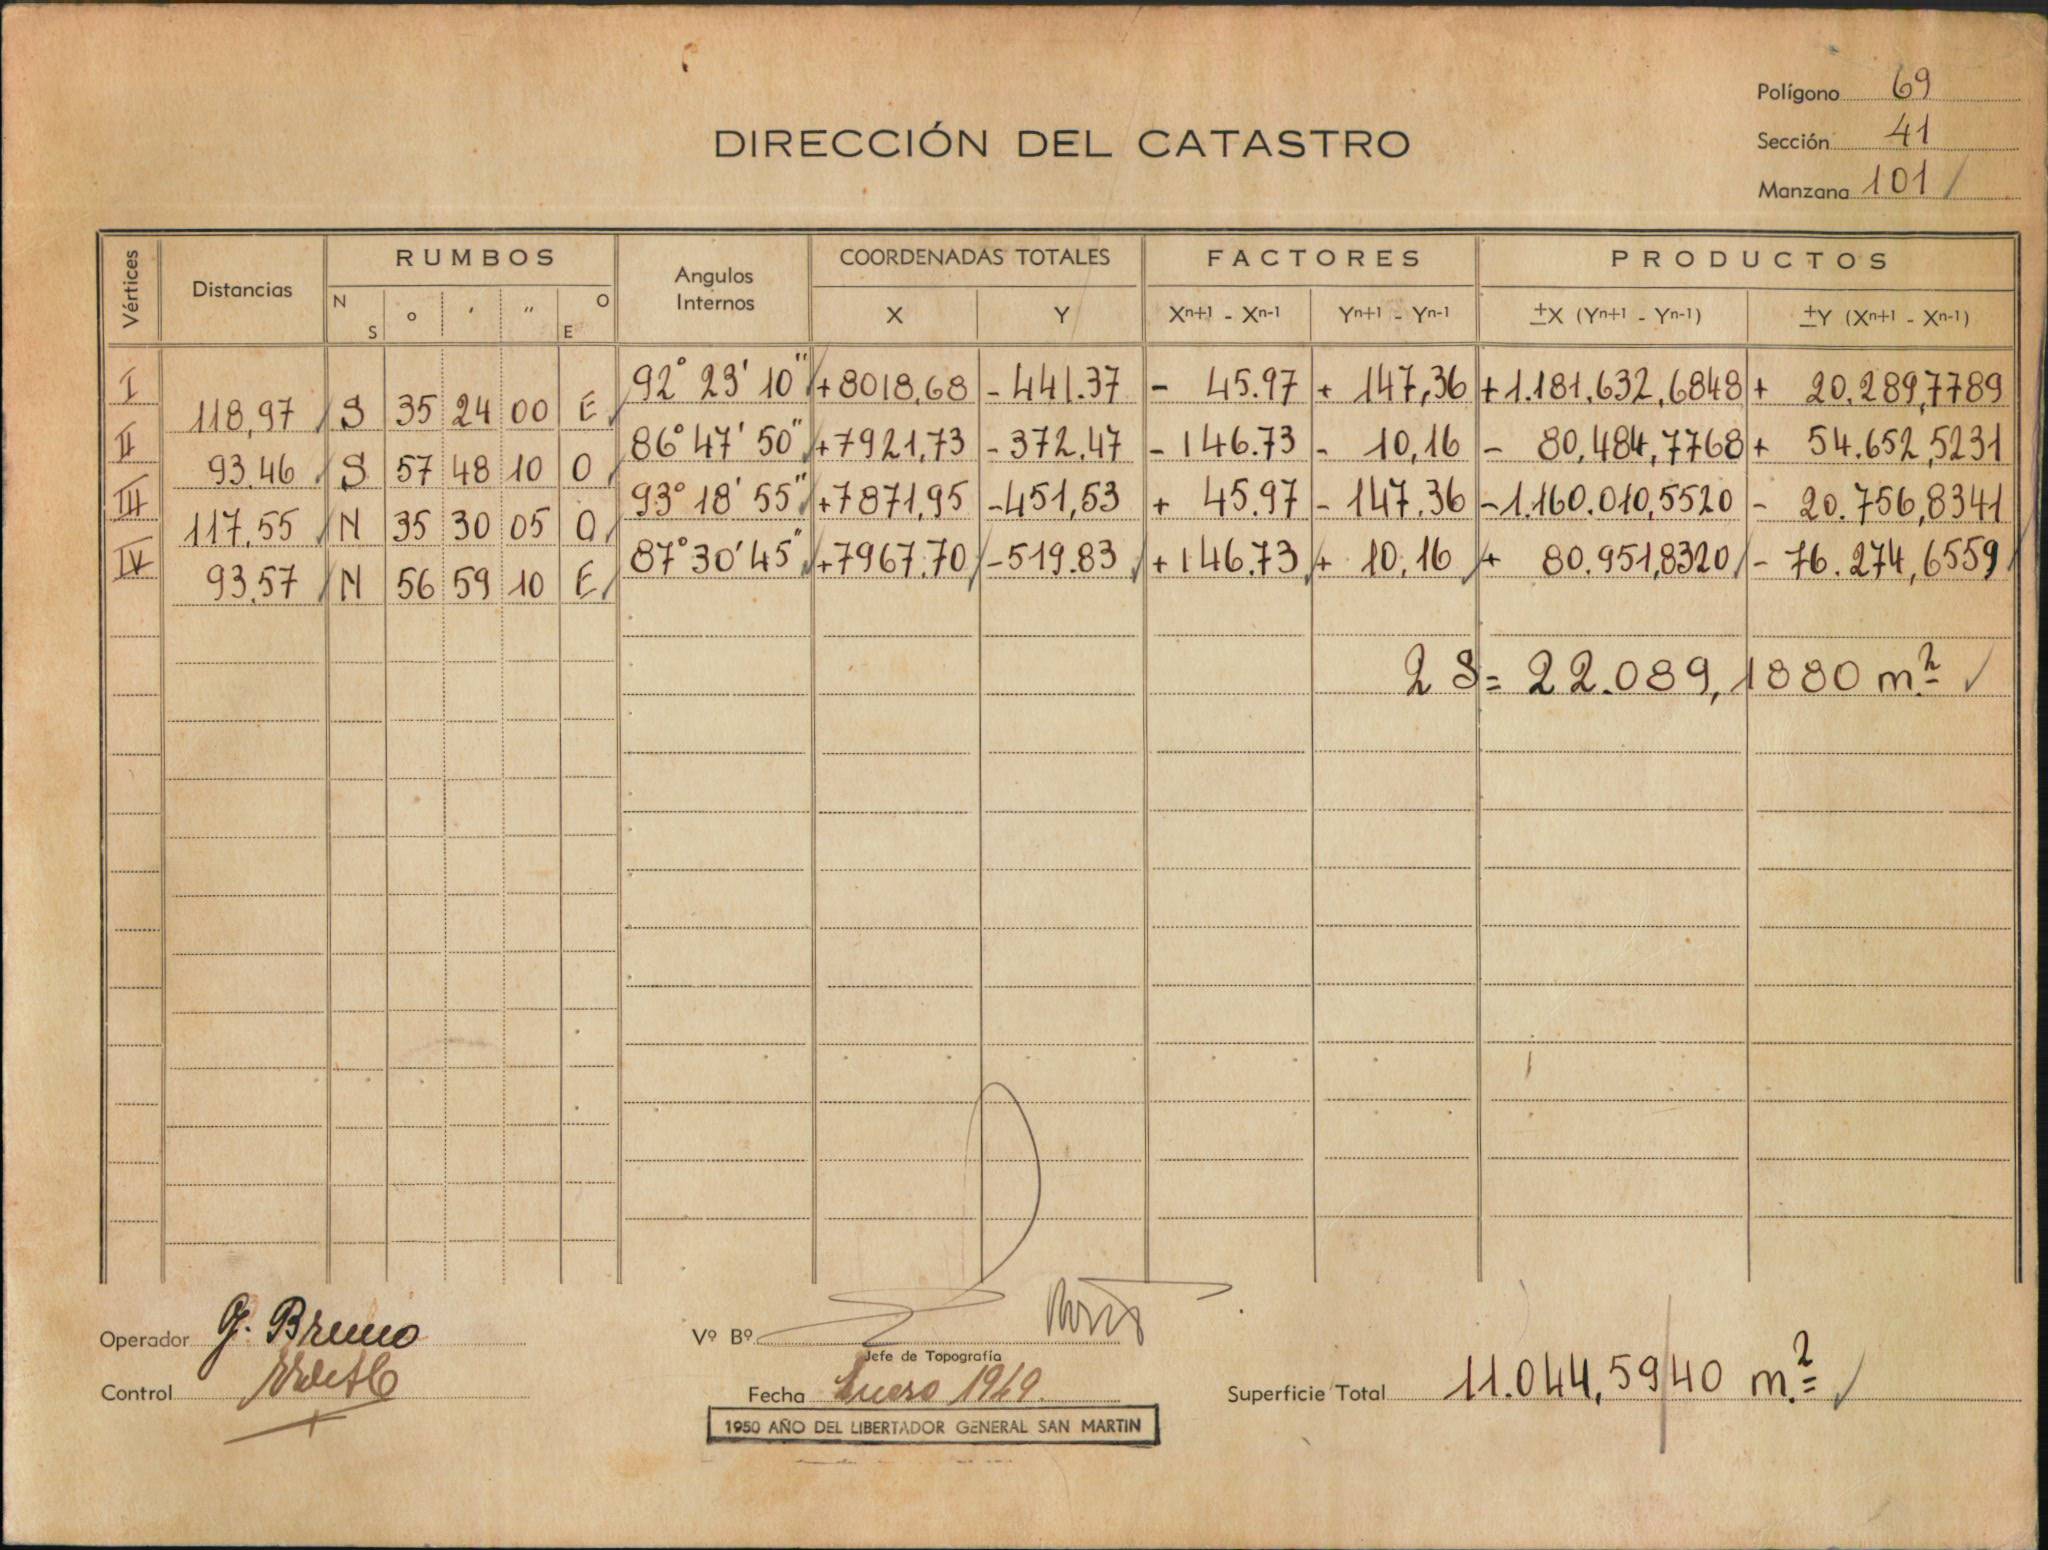 Polígono 69
DIRECCIÓN DEL CATASTRO
Sección 41
Manzana 101
Vértices Distancias RUMBOS Angulos Internos COORDENADAS TOTALES FACTORES PRODUCTOS
N S ° ' " O E X Y Xn+1 - Xn-1 Yn+1 - Yn-1 ±X (Yn+1 - Yn-1) ±Y (Xn+1 - Xn-1)
I 92° 23' 10" +8018,68 - 441.37 - 45.97 + 147,36 +1.181.632,6848 + 20.289,7789
118,97 S 35 24 00 E
II 86° 47' 50" +7921,73 - 372,47 - 146.73 - 10,16 - 80.484,7768 + 54.652,5231
93.46 S 57 48 10 O
III 93° 18' 55" +7871,95 -451,53 + 45.97 - 147.36 -1.160.010,5520 - 20.756,8341
117.55 N 35 30 05 O
IV 87° 30' 45" +7967.70 -519.83 +146.73 + 10,16 + 80.951,8320 - 76.274,6559
93.57 N 56 59 10 E
2 S = 22.089,1880 m.2
Operador G. Bruno
Vº Bº
Jefe de Topografía
Control
Fecha Enero 1949.
Superficie Total 11.044,5940 m.2
1950 AÑO DEL LIBERTADOR GENERAL SAN MARTIN